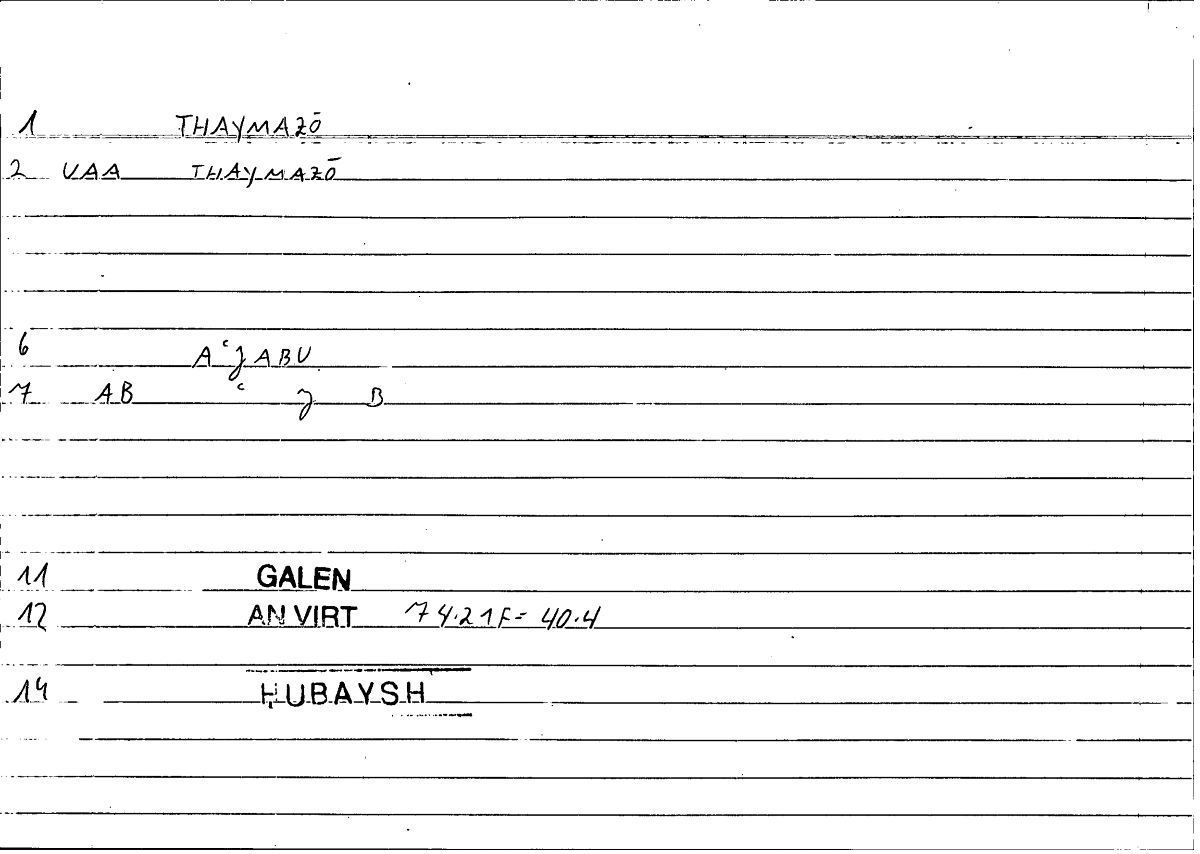 1 THAYMAZŌ
2 VAA THAYMAZŌ
6 AʿJABU
7 AB ʿ J B
11 GALEN
12 AN VIRT 74.21F= 40.4
14 ḤUBAYSH